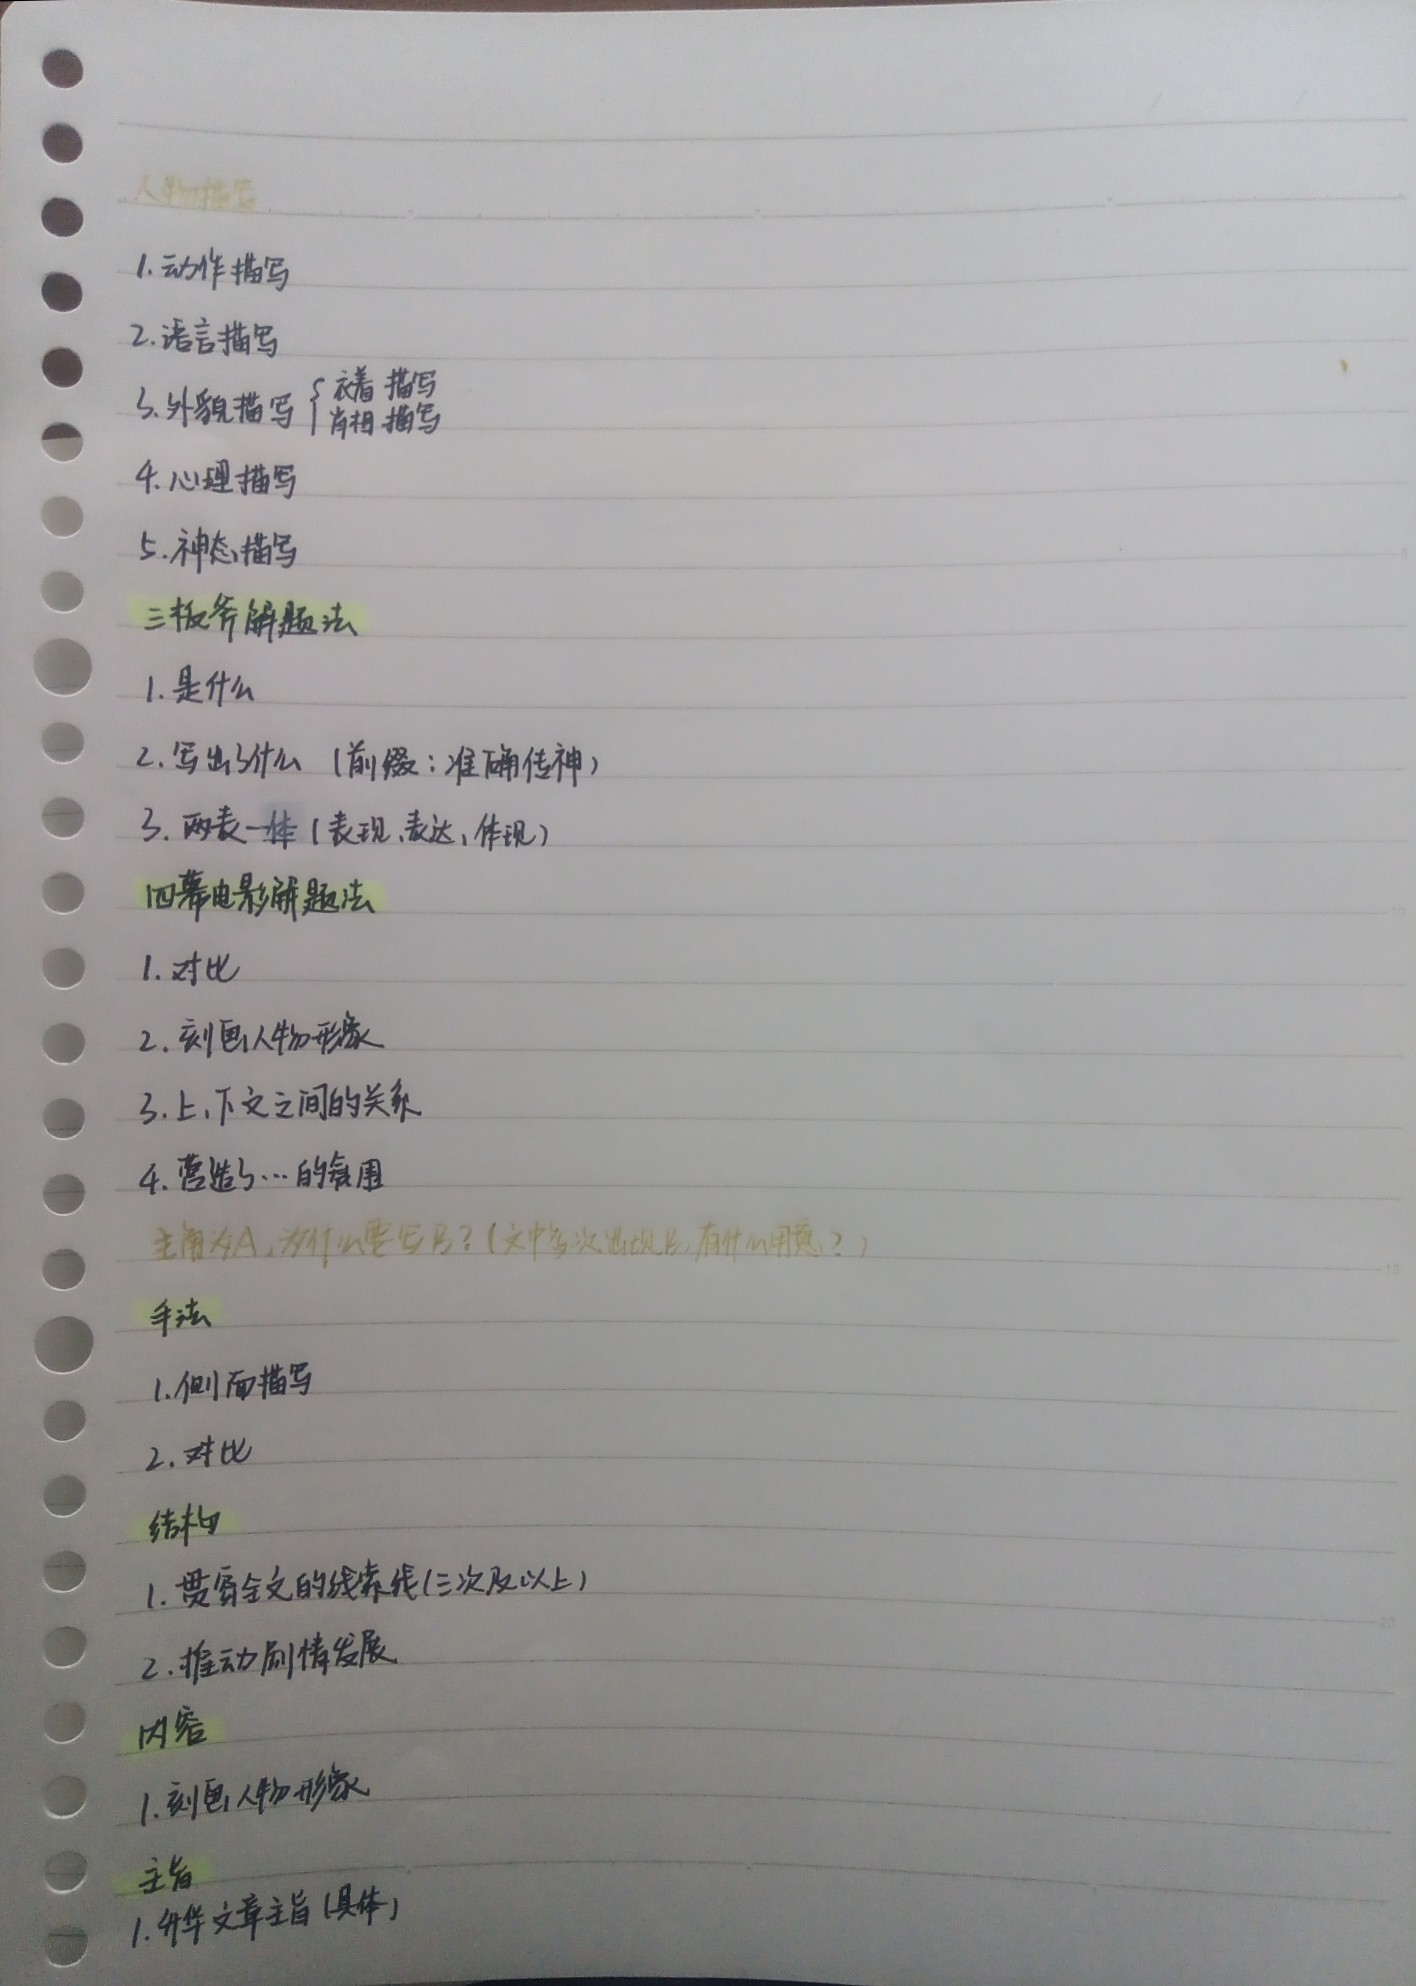 人物描写
1.动作描写
2.语言描写
3.外貌描写{衣着描写
肖相描写
4.心理描写
5.神态描写
三板斧解题法
1.是什么
2.写出了什么（前缀：准确传神）
3.两表一体（表现、表达、体现）
四幕电影解题法
1.对比
2.刻画人物形象
3.上、下文之间的关系
4.营造了…的氛围
主角为A，为什么要写B？（文中多次出现B，有什么用意？）
手法
1.侧面描写
2.对比
结构
1.贯穿全文的线索线（三次及以上）
2.推动剧情发展
内容
1.刻画人物形象
主旨
1.升华文章主旨（具体）